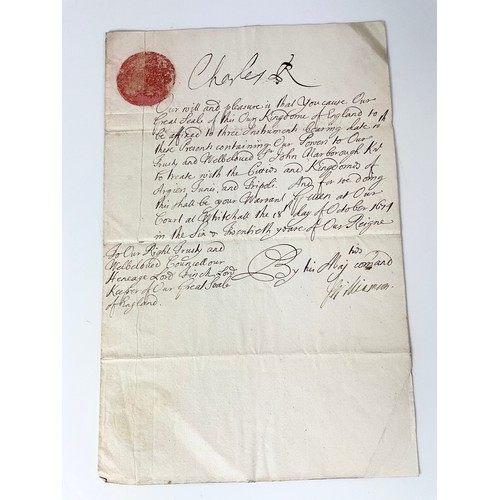 Charles R
Our will and pleasure is that You cause Our
Great Seale of this Our Kingdome of England to
be affixed to three Instruments bearing date wth
these Presents containing Our Power to Our
Trusty and Welbeloved Sr John Narborough Knt
to treate with the Citties and Kingdomes of
Argiers Tunis, and Tripoli. And for so doing
this shall be your Warrant Given at Our
Court at Whitehall the 18th day of October 1674
in the Six & Twentieth yeare of Our Reigne
To Our Right Trusty and
Welbeloved Councellour
Heneage Lord Finch Lord
Keeper of Our Great Seale
of England.
By his Majties comand